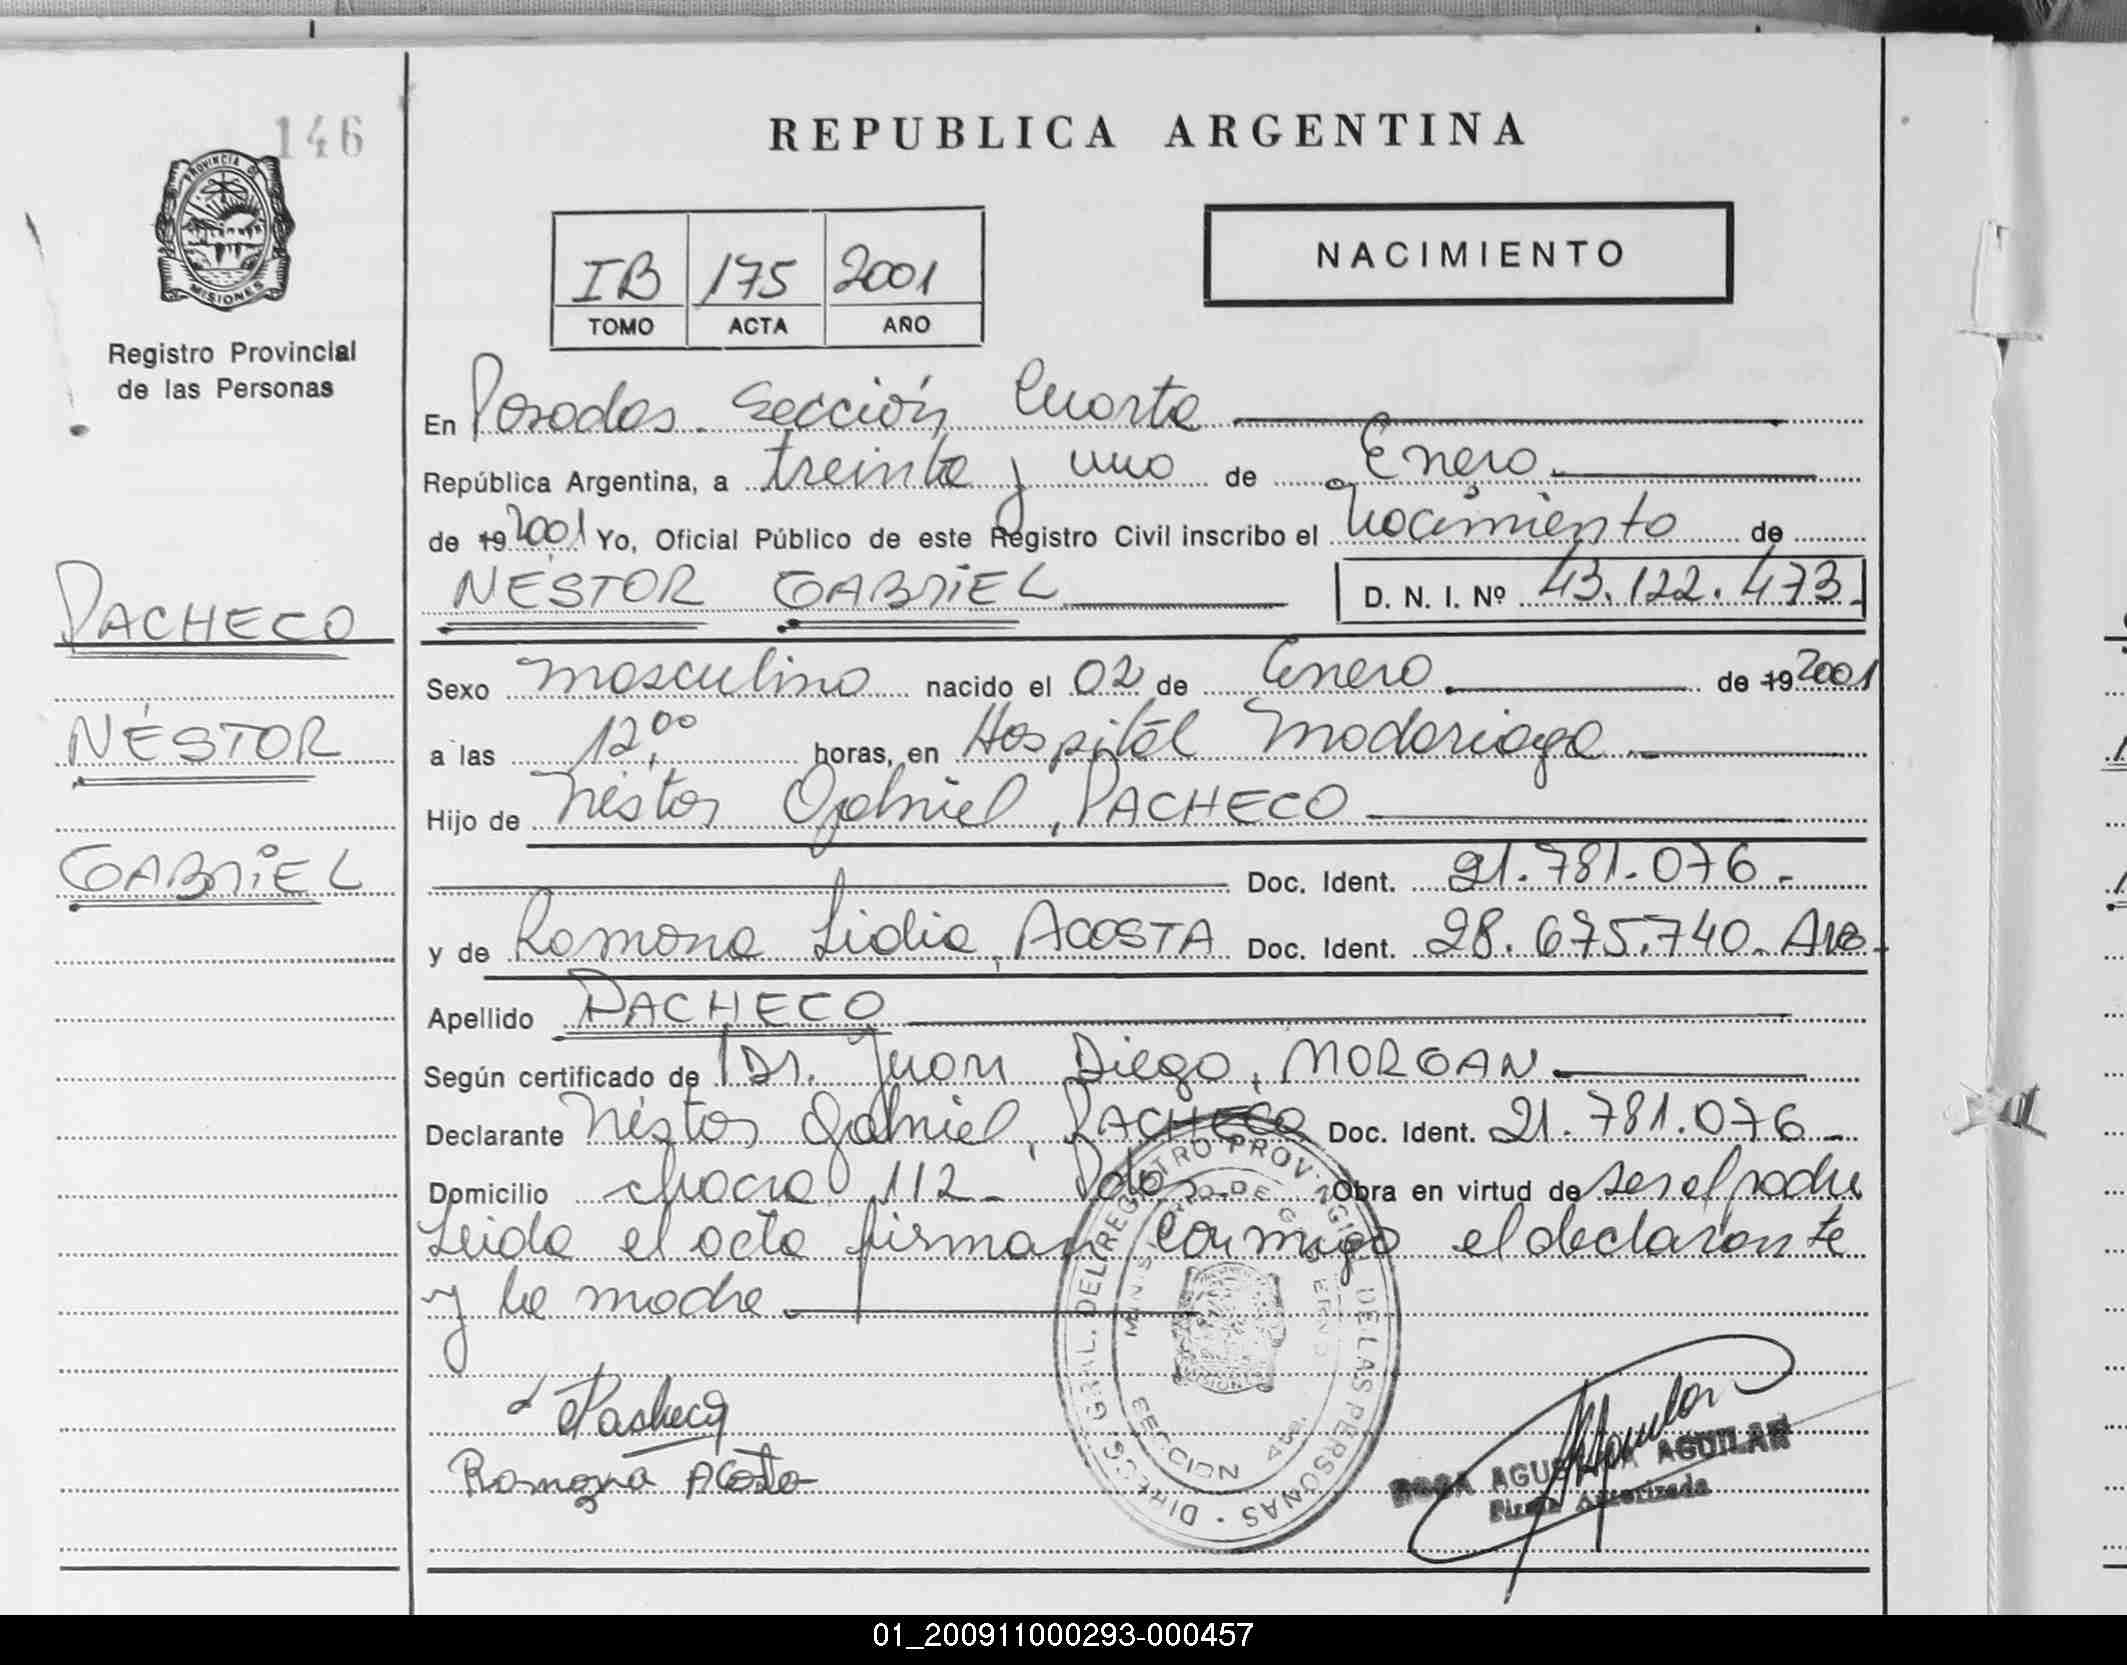 146
PROVINCIA DE
MISIONES
Registro Provincial
de las Personas
PACHECO
NÉSTOR
GABRIEL
REPUBLICA ARGENTINA
IB 175 2001
TOMO ACTA AÑO
NACIMIENTO
En Posadas. Sección Cuarta
República Argentina, a treinta y uno de Enero.
de 19 2001 Yo, Oficial Público de este Registro Civil inscribo el Nacimiento de
NÉSTOR GABRIEL D. N. I. Nº 43.122.473.
Sexo masculino nacido el 02 de Enero de 19 2001
a las 12,00 horas, en Hospital Madariaga
Hijo de Néstor Gabriel, PACHECO
Doc. Ident. 21.781.076.-
y de Ramona Lidia, ACOSTA Doc. Ident. 28.675.740.
Apellido PACHECO
Según certificado de Dr. Juan Diego, MORGAN
Declarante Néstor Gabriel, PACHECO Doc. Ident. 21.781.076-
Domicilio chacra 112- Pdas. Obra en virtud de ser el padre
Leida el acta firman conmigo el declarante
y la madre
Pacheco
Ramona Acosta
DIREC. GRAL. DEL REGISTRO PROVINCIAL DE LAS PERSONAS
MINISTERIO DE GOBIERNO
MISIONES
SECCION 4ta.
Aguilar
ROSA AGUSTINA AGUILAR
Firma Autorizada
01_200911000293-000457